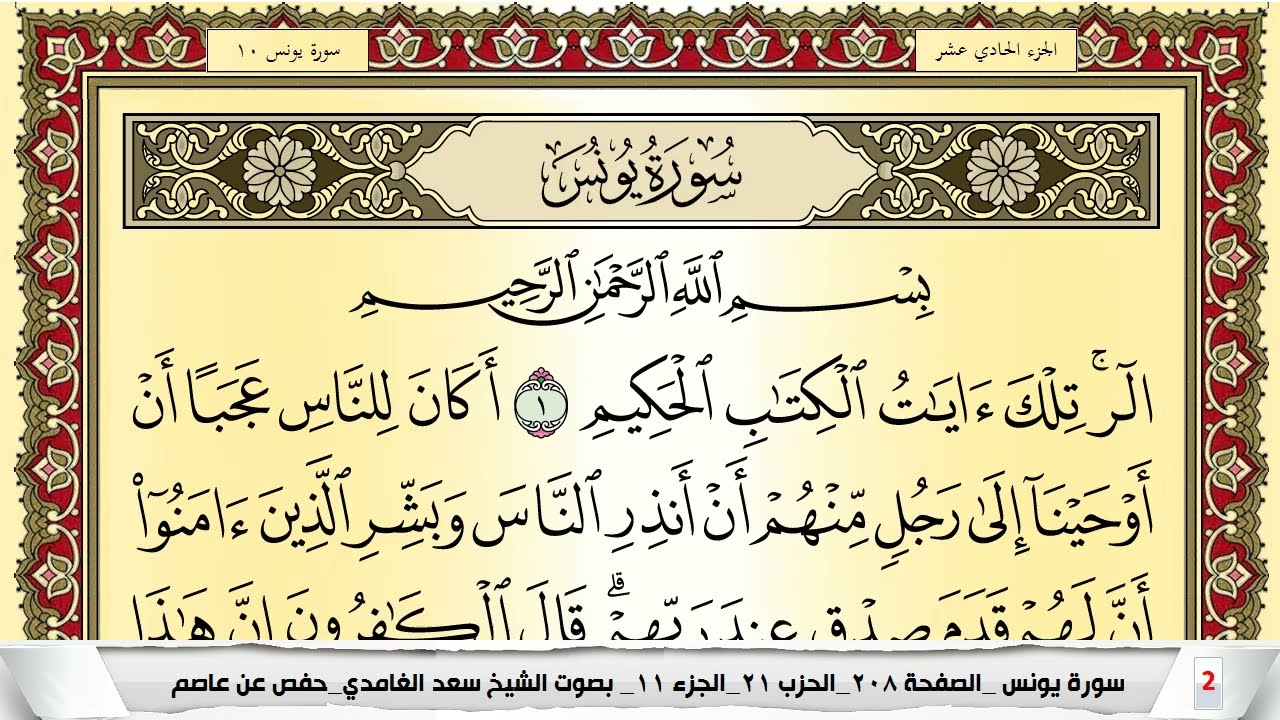 الجزء الحادي عشر
سورة يونس ١٠
سُورَةُ يُونُسَ
بِسْمِ ٱللَّهِ ٱلرَّحْمَٰنِ ٱلرَّحِيمِ
الٓرۚ تِلْكَ ءَايَٰتُ ٱلْكِتَٰبِ ٱلْحَكِيمِ ١ أَكَانَ لِلنَّاسِ عَجَبًا أَنْ
أَوْحَيْنَآ إِلَىٰ رَجُلٍ مِّنْهُمْ أَنْ أَنذِرِ ٱلنَّاسَ وَبَشِّرِ ٱلَّذِينَ ءَامَنُوٓا۟
أَنَّ لَهُمْ قَدَمَ صِدْقٍ عِندَ رَبِّهِمْۗ قَالَ ٱلْكَٰفِرُونَ إِنَّ هَٰذَا
2
سورة يونس _الصفحة ٢٠٨_الحزب ٢١_الجزء ١١_ بصوت الشيخ سعد الغامدي_حفص عن عاصم